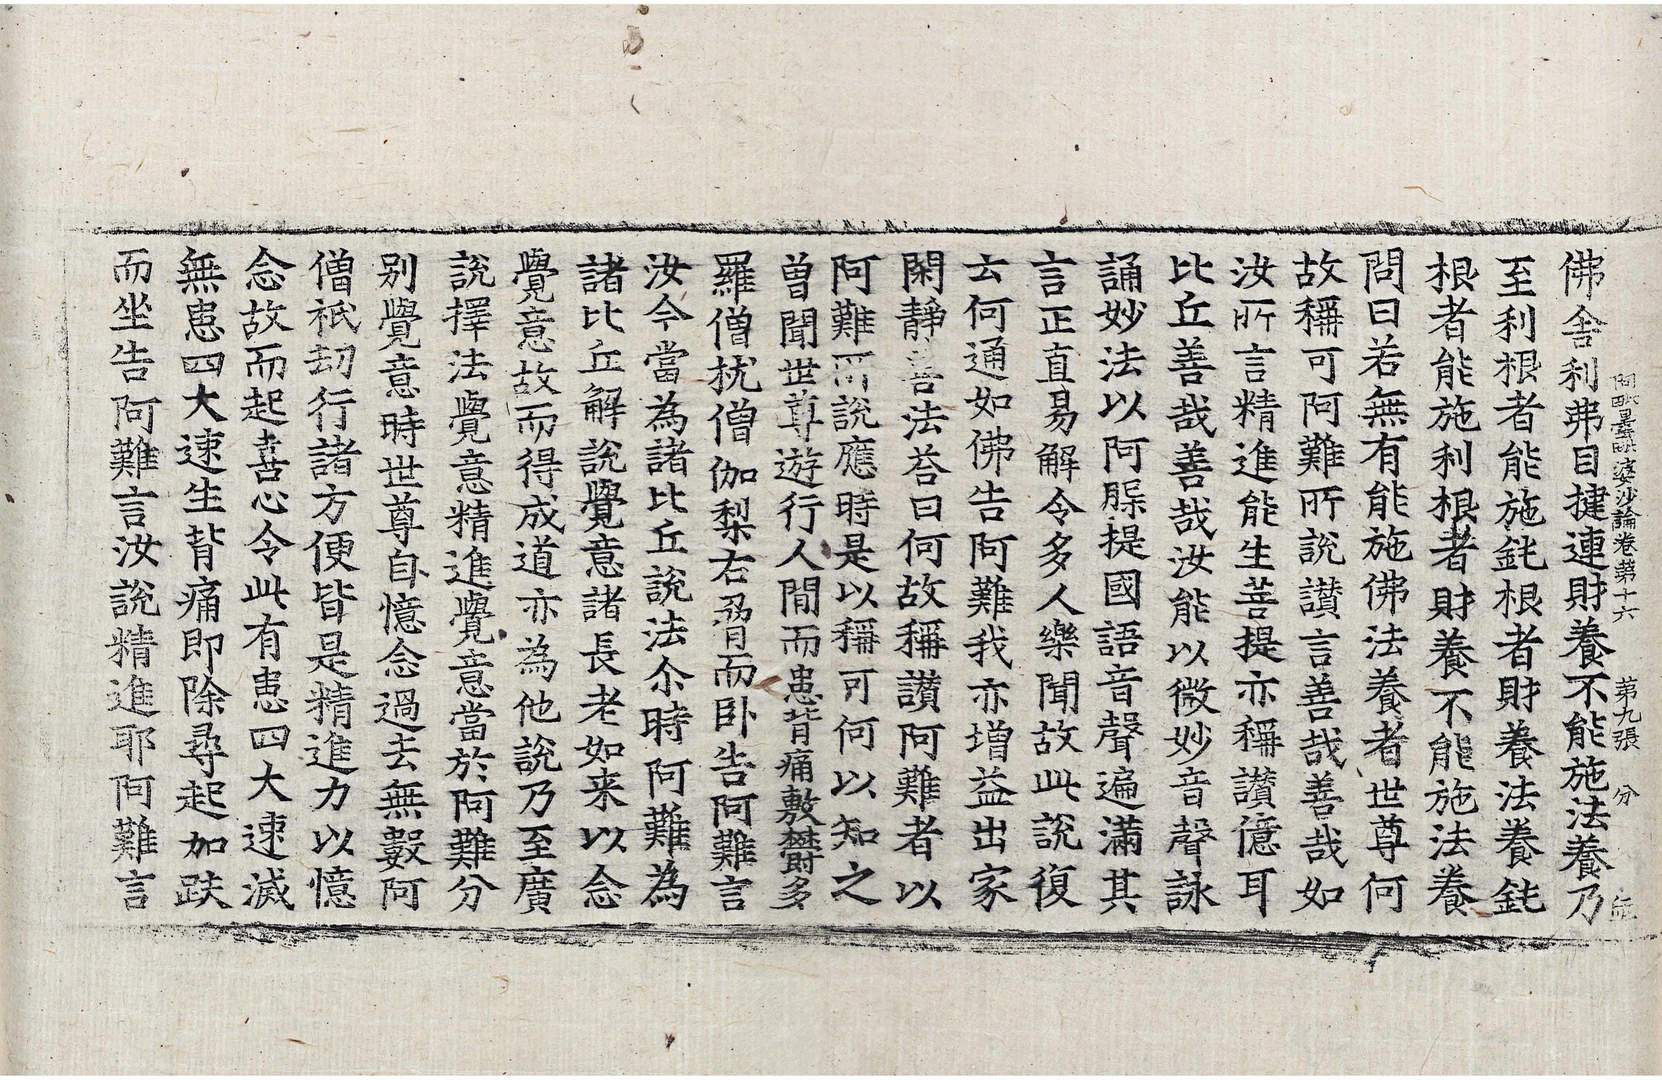 阿毗曇毗婆沙論卷第十六 第九張 分
佛舍利弗目揵連財養不能施法養乃
至利根者能施鈍根者財養法養鈍
根者能施利根者財養不能施法養
問曰若無有能施佛法養者世尊何
故稱可阿難所說讃言善哉善哉如
汝所言精進能生菩提亦稱讃億耳
比丘善哉善哉汝能以微妙音聲詠
誦妙法以阿𦟛提國語音聲遍滿其
言正直易解令多人樂聞故此說復
云何通如佛告阿難我亦增益出家
閑靜善法荅曰何故稱讃阿難者以
阿難所說應時是以稱可何以知之
曾聞世尊遊行人間而患背痛敷欝多
羅僧抌僧伽梨右脅而卧告阿難言
汝今當為諸比丘說法尒時阿難為
諸比丘解說覺意諸長老如来以念
覺意故而得成道亦為他說乃至廣
說擇法覺意精進覺意當於阿難分
別覺意時世尊自憶念過去無數阿
僧祇劫行諸方便皆是精進力以憶
念故而起喜心令此有患四大速滅
無患四大速生背痛即除尋起加趺
而坐告阿難言汝說精進耶阿難言